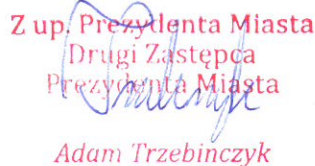 Z up. Prezydenta Miasta
Drugi Zastępca
Prezydenta Miasta
Adam Trzebinczyk